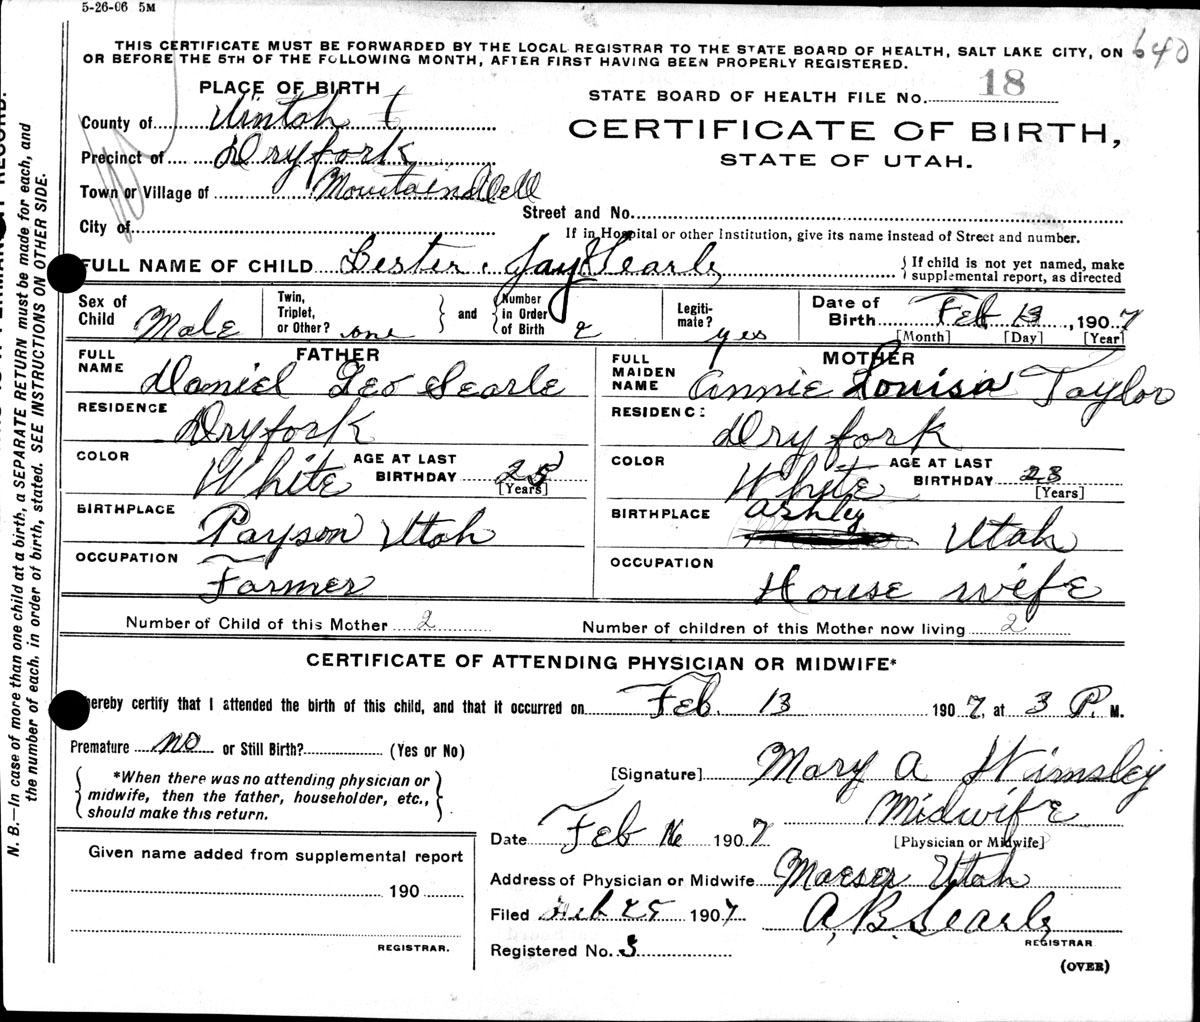 5-26-06 5M
THIS CERTIFICATE MUST BE FORWARDED BY THE LOCAL REGISTRAR TO THE STATE BOARD OF HEALTH, SALT LAKE CITY, ON
OR BEFORE THE 5TH OF THE FOLLOWING MONTH, AFTER FIRST HAVING BEEN PROPERLY REGISTERED.
640
PLACE OF BIRTH
STATE BOARD OF HEALTH FILE No. 18
County of Uintah
CERTIFICATE OF BIRTH,
Precinct of Dryfork
STATE OF UTAH.
Town or Village of Mountaindell
Street and No.
City of
If in Hospital or other Institution, give its name instead of Street and number.
FULL NAME OF CHILD Lester Jay Searle
{ If child is not yet named, make
supplemental report, as directed
Sex of Child Male
Twin, Triplet, or Other? one } and { Number in Order of Birth 2
Legiti-mate? yes
Date of Birth Feb 13, 1907
[Month] [Day] [Year]
FATHER
FULL NAME Daniel Geo Searle
RESIDENCE Dryfork
COLOR White AGE AT LAST BIRTHDAY 25
[Years]
BIRTHPLACE Payson Utah
OCCUPATION Farmer
MOTHER
FULL MAIDEN NAME Annie Louisa Taylor
RESIDENCE: Dry fork
COLOR White AGE AT LAST BIRTHDAY 23
[Years]
BIRTHPLACE Ashley Utah
OCCUPATION House wife
Number of Child of this Mother 2
Number of children of this Mother now living 2
CERTIFICATE OF ATTENDING PHYSICIAN OR MIDWIFE*
hereby certify that I attended the birth of this child, and that it occurred on Feb. 13 1907, at 3 P. M.
Premature no or Still Birth? (Yes or No)
{ *When there was no attending physician or
midwife, then the father, householder, etc.,
should make this return. }
[Signature] Mary A Wimsley
Midwife
[Physician or Midwife]
Date Feb 16 1907
Address of Physician or Midwife Maeser Utah
Filed Feb 25 1907
A. B. Searle
REGISTRAR
Registered No. 3
(OVER)
Given name added from supplemental report
190
REGISTRAR.
N. B.—In case of more than one child at a birth, a SEPARATE RETURN must be made for each, and
the number of each, in order of birth, stated. SEE INSTRUCTIONS ON OTHER SIDE.
RECORD.